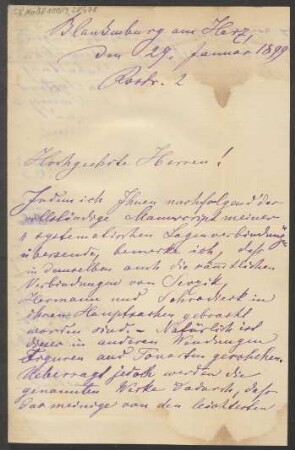 Blankenburg am Harz,
den 29. Januar 1899
Rostr. 2
Hochgeehrte Herren!
Indem ich Ihnen nachfolgend das
vollständige Manuscript meiner
systematischen Lagenverbindung"
übersende, bemerke ich, daß
in demselben auch die sämtlichen
Verbindungen von Sevzik,
Hermann und Schradieck in
ihren Hauptsachen gebracht
worden sind. - Natürlich ist
dieser in anderen Wendungen
Figuren und Tonarten geschehen.
Ueberragt jedoch werden die
genannten Werke dadurch, daß
das meinige von den leichtesten